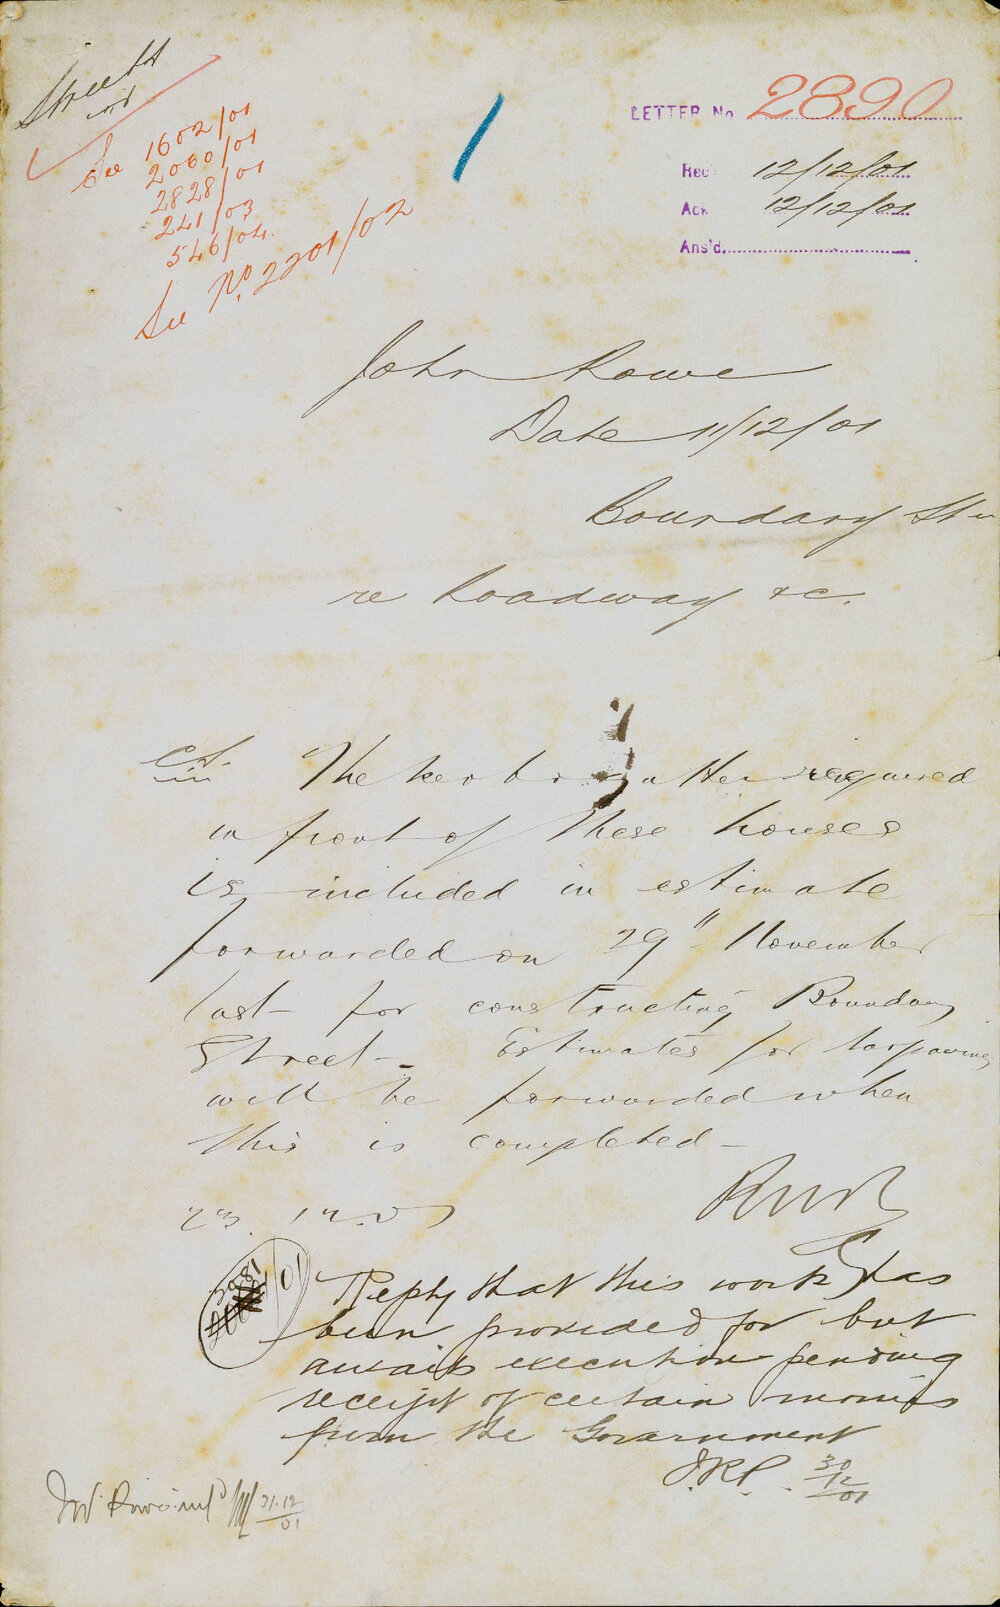 Streets
See 1602/01
2060/01
2828/01
241/03
546/04.
See No. 2201/02
1
LETTER No 2890
Rec 12/12/01
Ack 12/12/01
Ans'd
John Rowe
Date 11/12/01
Boundary St
re Roadway &c.
The kerb gutter required
in front of these houses
is included in estimate
forwarded on 29th November
last for constructing Boundary
Street – Estimates for tarpaving
will be forwarded when
this is completed –
23.12.01
3881/01
Reply that this work has
been provided for but
awaits execution pending
receipt of certain monies
from the Government
30/12/01
31.12/01